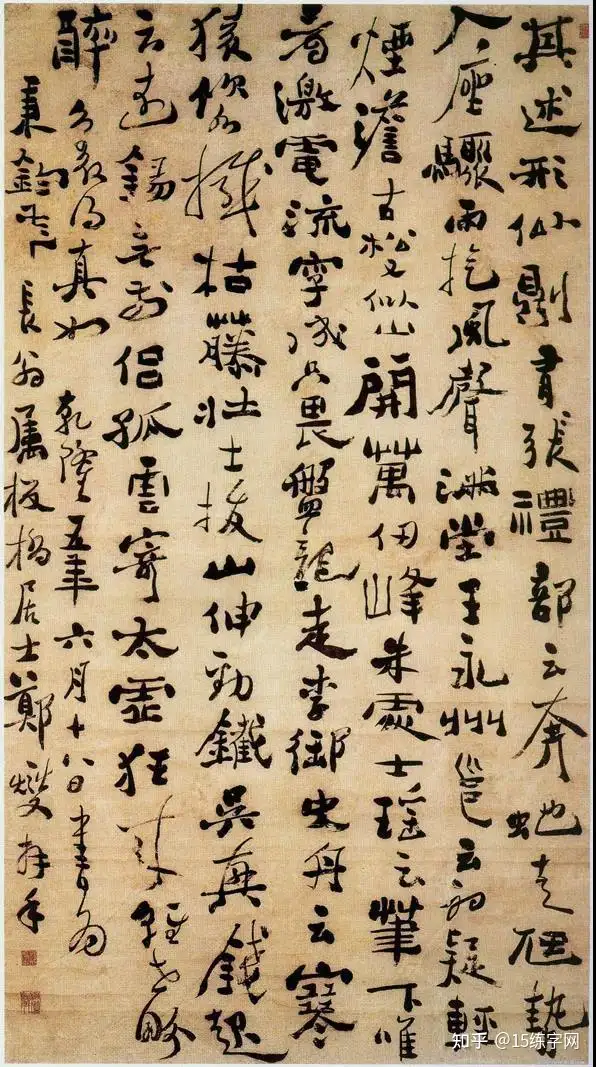 其述形似則有張禮部云奔虵走虺勢
入座驟雨旋風聲滿堂王永州邕云初疑輕
煙澹古松又似山開萬仞峰朱處士瑶云筆下唯
看激電流字成只畏盤龍走李御史舟云寒
猿飲水撼枯藤壯士拔山伸勁鐵吳興錢起
云遠錫無前侶孤雲寄太虛狂來輕世界
醉得真如 乾隆五年六月十八日書為
秉鈞長翁属板橋居士鄭燮拜手
知乎 @15练字网